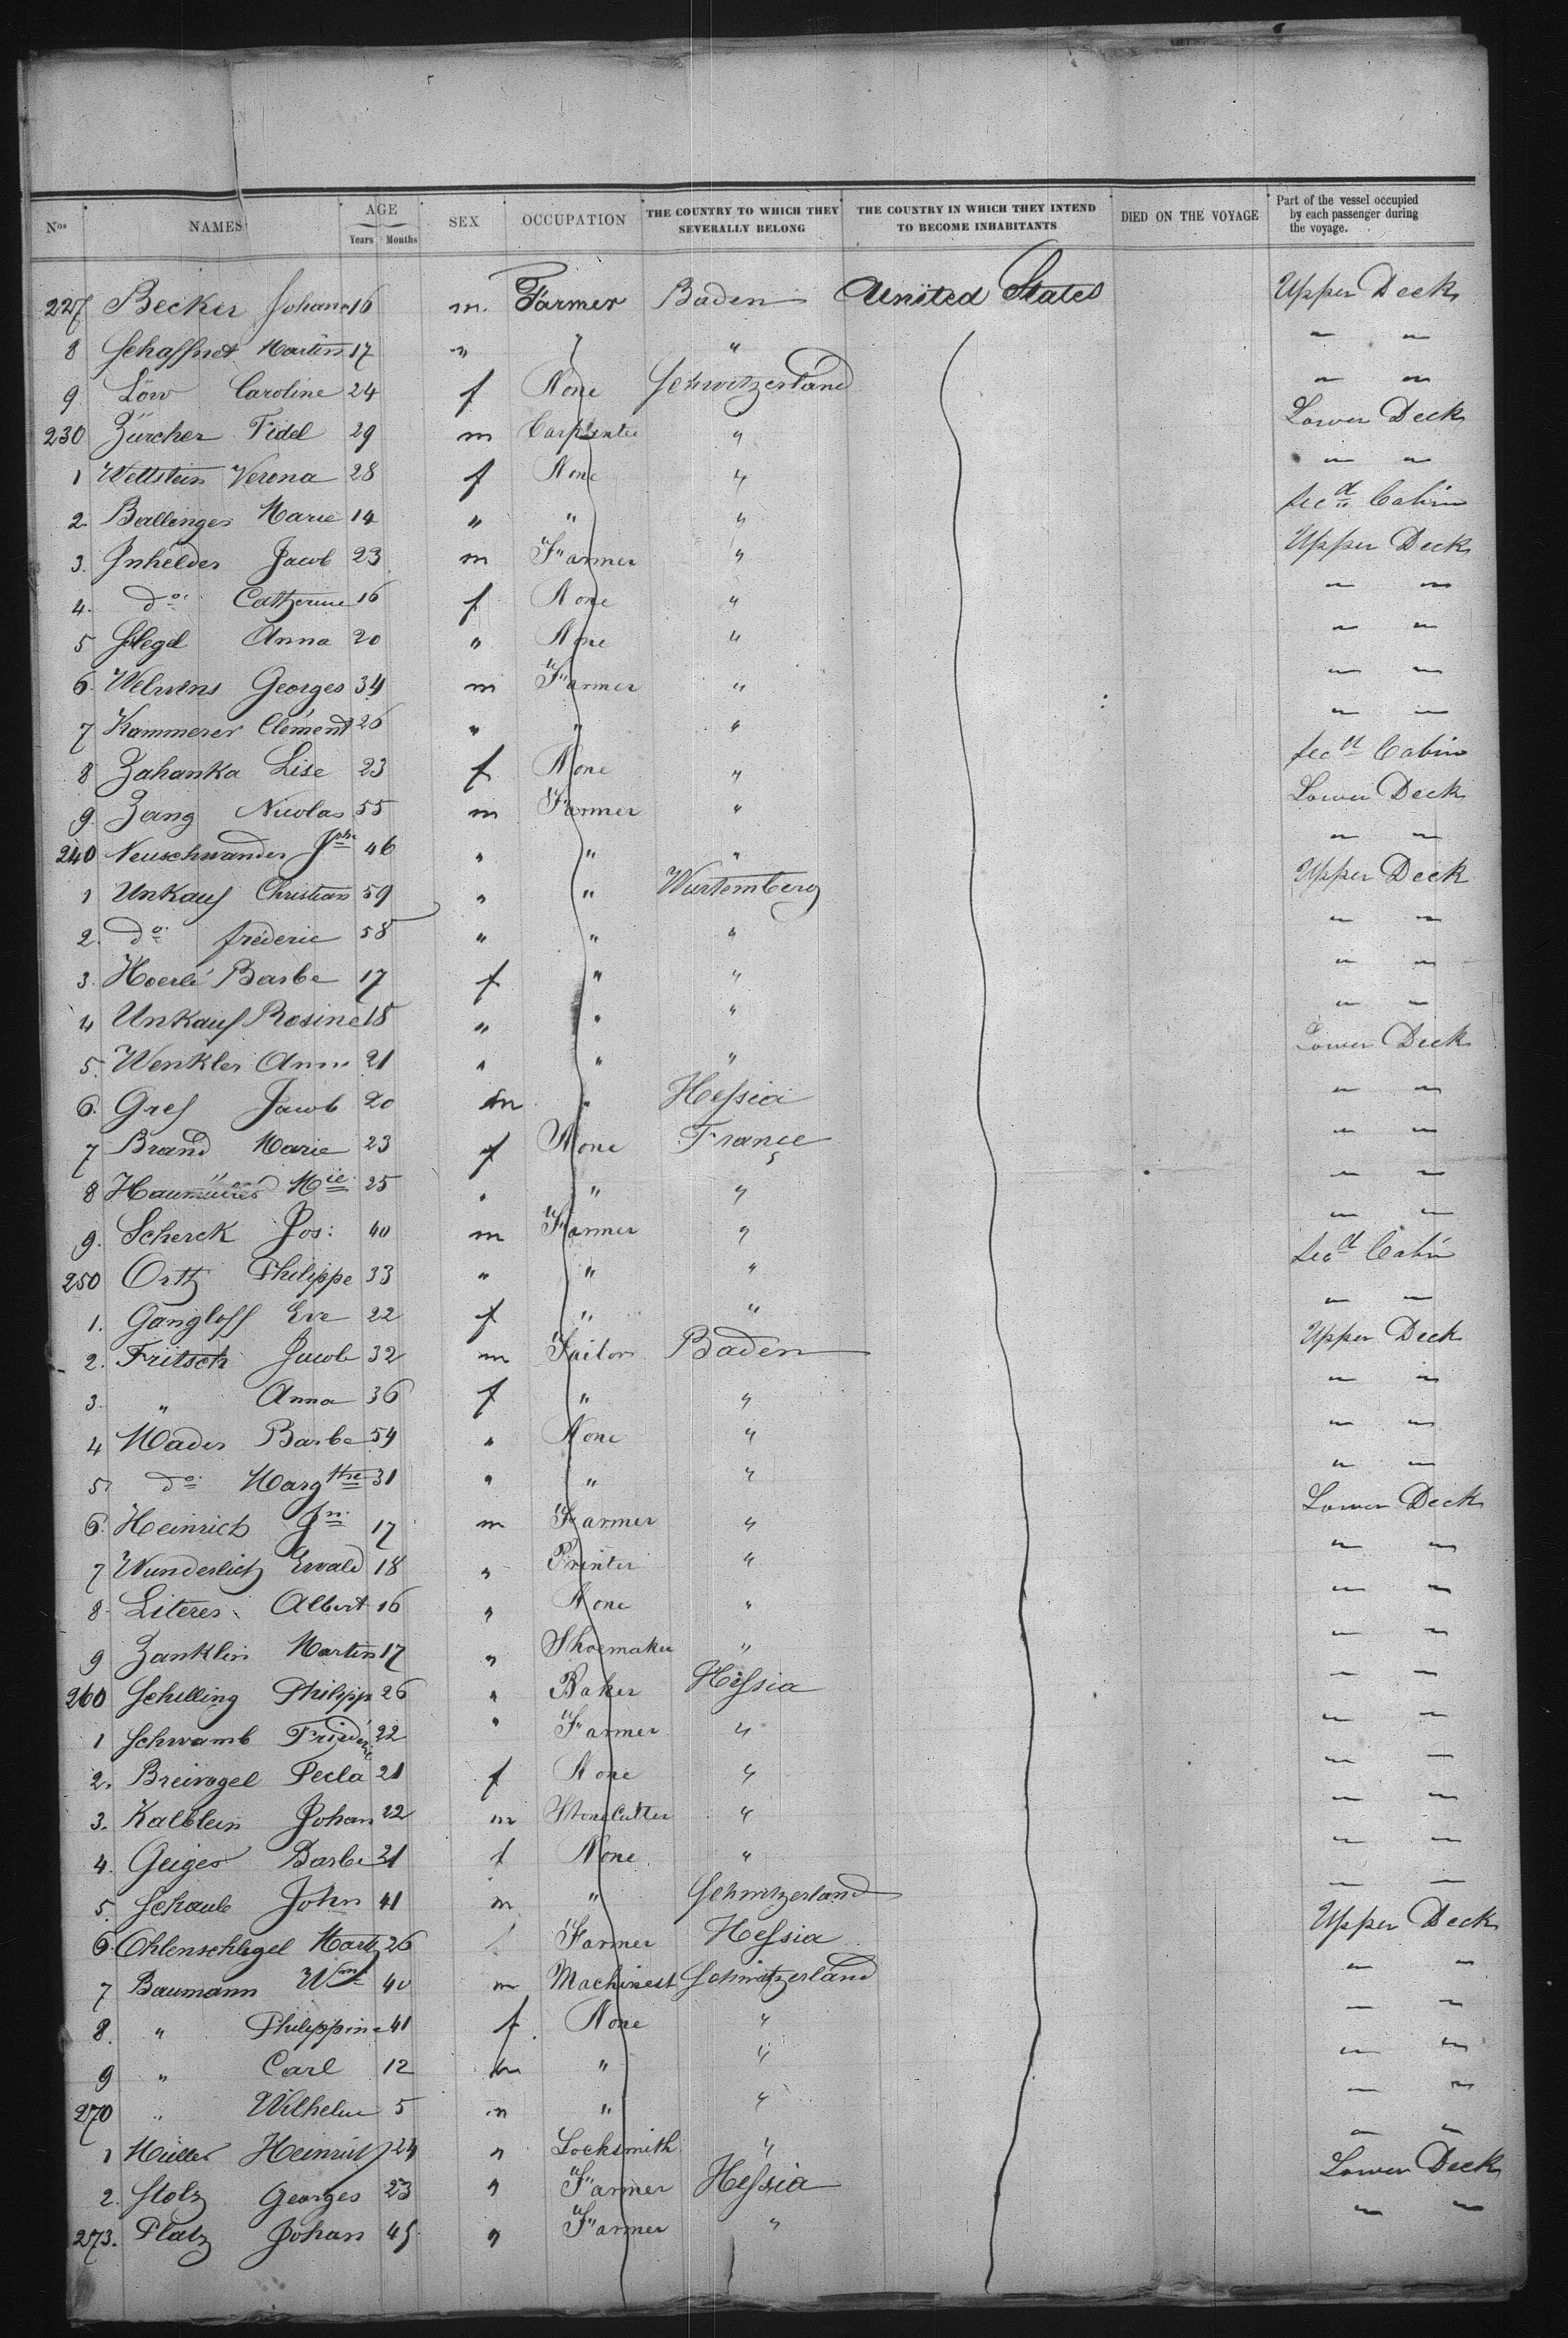 Nos NAMES AGE Years Months SEX OCCUPATION THE COUNTRY TO WHICH THEY SEVERALLY BELONG THE COUNTRY IN WHICH THEY INTEND TO BECOME INHABITANTS DIED ON THE VOYAGE Part of the vessel occupied by each passenger during the voyage.
227 Becker Johann 16 m. Farmer Baden United States Upper Deck
8 Schaffnet Martin 17 " " " " "
9 Löw Caroline 24 f None Schwitzerland " "
230 Zürcher Fidel 29 m Carpenter " Lower Deck
1 Wettstein Verona 28 f None " " "
2. Ballinger Marie 14 " " " Secd Cabin
3. Inhelder Jacob 23 m Farmer " Upper Deck
4. do. Catherine 16 f None " " "
5 Anna 20 " None " " "
6. Georges 34 m Farmer " " "
7 Kammerer Clément 26 " " " " "
8 Zahanka Lise 23 f None " Secd Cabin
9. Zang Nicolas 55 m Farmer " Lower Deck
240 Neuschwander Jph 46 " " " " "
1 Unkauf Christian 59 " " Wurtemberg Upper Deck
2. do. fréderic 58 " " " " "
3. Hoerlé Barbe 17 f " " " "
4 Unkauf Rosine 18 " " " " "
5. Wenkler Anna 21 " " " Lower Deck
6. Gref Jacob 20 m " Hessia " "
7 Brand Marie 23 f None France " "
8 Mie 25 " " " " "
9. Scherck Jos: 40 m Farmer " " "
250 Orth Philippe 33 " " " Secd Cabin
1. Gangloff Eve 22 f " " " "
2. Fritsch Jacob 32 m Tailor Baden Upper Deck
3. " Anna 36 f " " " "
4 Mader Barbe 54 " None " " "
5 do. Margthe 31 " " " " "
6. Heinrich Jn. 17 m Farmer " Lower Deck
7 Wunderlich Ewald 18 " Printer " " "
8. Literer Albert 16 " None " " "
9 Zanklin Martin 17 " Shoemaker " " "
260 Schilling Philipp 26 " Baker Hessia " "
1 Schwamb Fridéric 22 " Farmer " " "
2. Breivogel Pecla 21 f None " " "
3. Kalblein Johan 22 m Stonecutter " " "
4. Geiger Barbe 21 f None " " "
5. Schaub John 41 m " Schwitzerland " "
6. Ohlenschlegel 26 Farmer Hessia Upper Deck
7 Baumann Wm 40 m Machinest Schwitzerland " "
8. " Philippine 41 f. None " " "
9 " Carl 12 m " " " "
270 " Wilhelm 5 m " " " "
1 Müller Heinrich 24 " Locksmith " " "
2. Stolz Georges 23 " Farmer Hessia Lower Deck
273. Platz Johan 45 " Farmer " " "